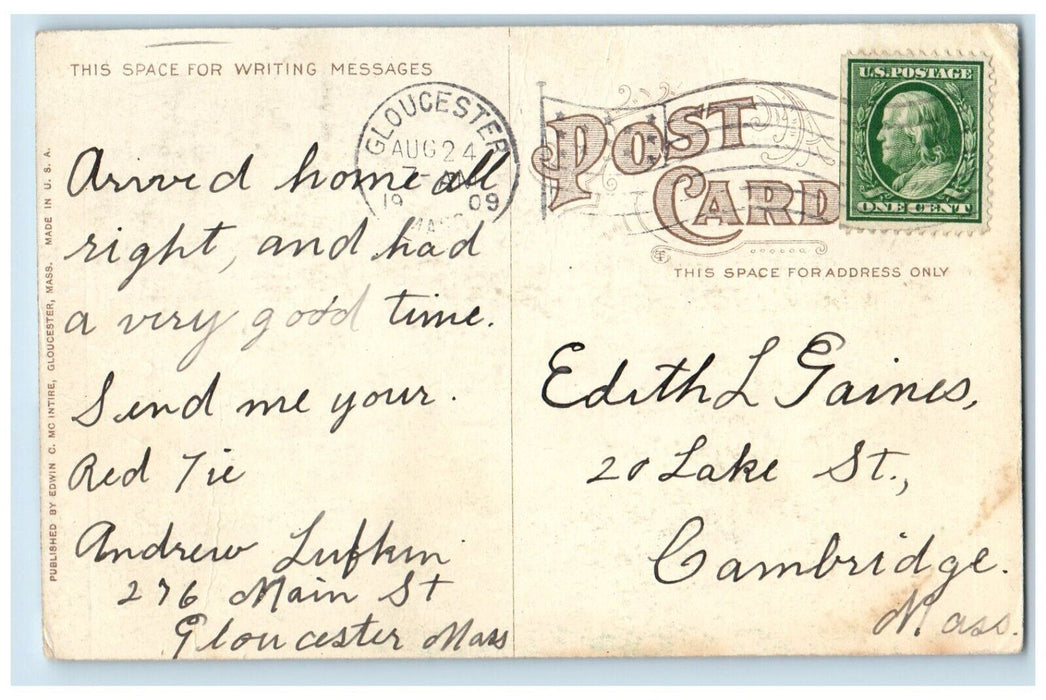 THIS SPACE FOR WRITING MESSAGES
Arrived home all
right, and had
a very good time.
Send me your.
Red Tie
Andrew Lufkin
276 Main St
Gloucester Mass
PUBLISHED BY EDWIN C. MC INTIRE, GLOUCESTER, MASS. MADE IN U. S. A.
GLOUCESTER
AUG 24
19 09
MASS
POST
CARD
THIS SPACE FOR ADDRESS ONLY
U.S. POSTAGE
ONE CENT
Edith L Gaines,
20 Lake St.,
Cambridge.
Mass.